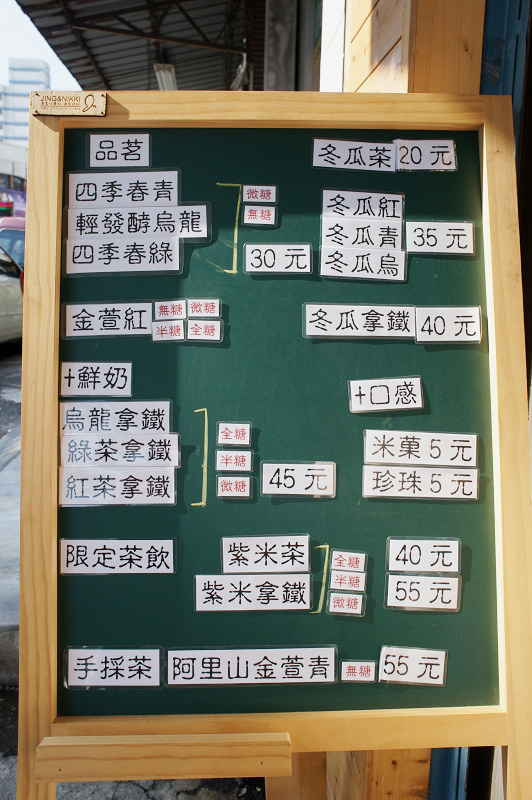 JING&NIKKI
品茗
冬瓜茶 20 元
四季春青
輕發酵烏龍
四季春綠
微糖
無糖
30 元
冬瓜紅
冬瓜青
冬瓜烏
35 元
金萱紅 無糖 微糖
半糖 全糖
冬瓜拿鐵 40 元
+鮮奶
烏龍拿鐵
綠茶拿鐵
紅茶拿鐵
全糖
半糖
微糖
45 元
+口感
米菓 5 元
珍珠 5 元
限定茶飲
紫米茶
紫米拿鐵
全糖
半糖
微糖
40 元
55 元
手採茶 阿里山金萱青 無糖 55 元